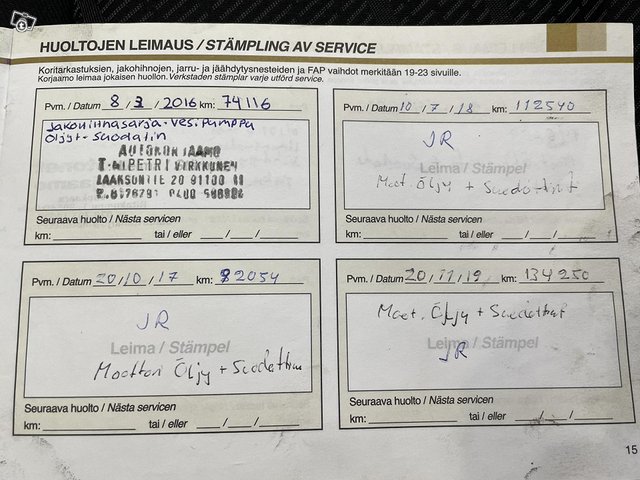 HUOLTOJEN LEIMAUS / STÄMPLING AV SERVICE
Koritarkastuksien, jakohihnojen, jarru- ja jäähdytysnesteiden ja FAP vaihdot merkitään 19-23 sivuille.
Korjaamo leimaa jokaisen huollon. Verkstaden stämplar varje utförd service.
Pvm. / Datum 8 / 3 / 2016 km: 74116
Jakohihnasarja + Vesipumppu
Öljyt + Suodatin
AUTOKORJAAMO
PETRI VIRKKUNEN
Seuraava huolto / Nästa servicen
km: tai / eller / /
Pvm. / Datum 10 / 7 / 18 km: 112540
JR
Leima / Stämpel
Moot. Öljy + Suodattimt
Seuraava huolto / Nästa servicen
km: tai / eller / /
Pvm. / Datum 20 / 10 / 17 km: 92054
JR
Leima / Stämpel
Moottori Öljy + Suodattim
Seuraava huolto / Nästa servicen
km: tai / eller / /
Pvm. / Datum 20 / 11 / 19 km: 134250
Moot. Öljy + Suodattimt
Leima / Stämpel
JR
Seuraava huolto / Nästa servicen
km: tai / eller / /
15